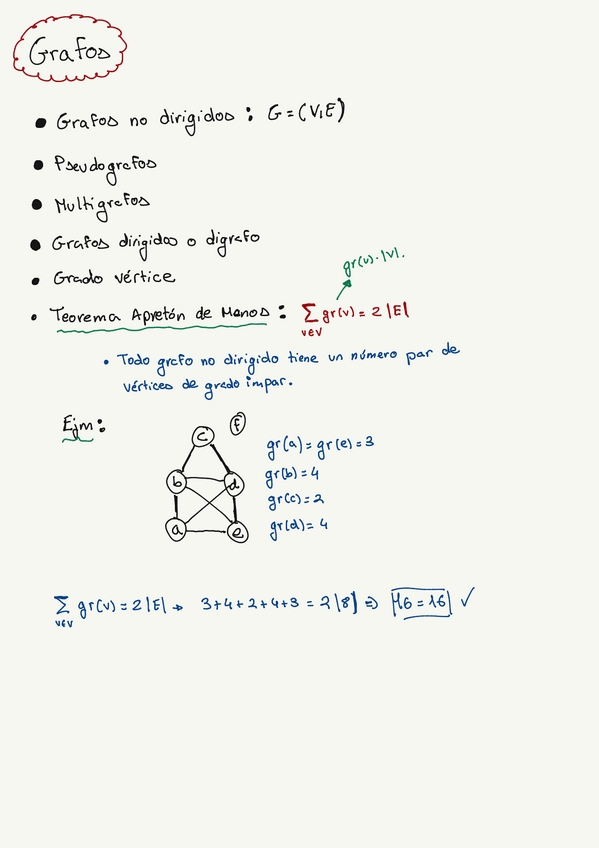 Grafos
• Grafos no dirigidos : G = (V, E)
• Pseudografos
• Multigrafos
• Grafos dirigidos o digrafo
• Grado vértice
gr(v)·|V|.
• Teorema Apretón de Manos : ∑ gr(v) = 2 |E|
v∈V
• Todo grafo no dirigido tiene un número par de
vértices de grado impar.
Ejm:
c
f
b
d
a
e
gr(a) = gr(e) = 3
gr(b) = 4
gr(c) = 2
gr(d) = 4
∑ gr(v) = 2 |E| → 3+4+2+4+3 = 2 |8| ⇒ 16 = 16 ✓
v∈V